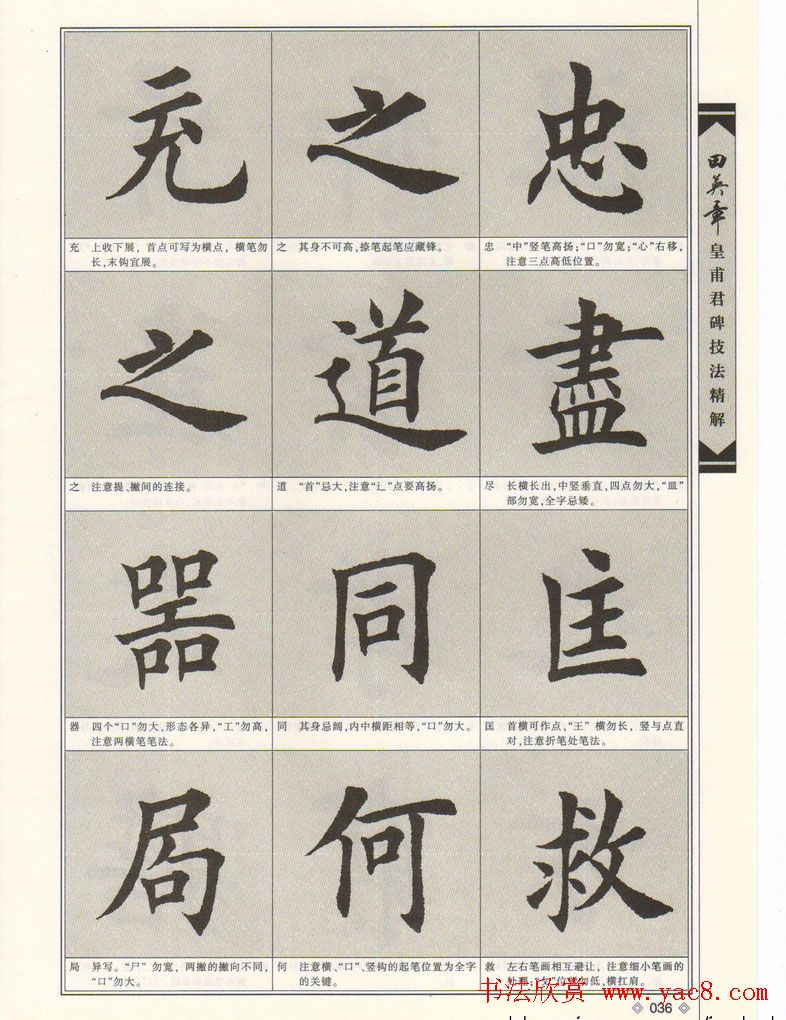 充 之 忠
充 上收下展，首点可写为横点，横笔勿
长，末钩宜展。
之 其身不可高，捺笔起笔应藏锋。
忠 “中”竖笔高扬；“口”勿宽；“心”右移，
注意三点高低位置。
之 道 盡
之 注意提、撇间的连接。
道 “首”忌大，注意“辶”点要高扬。
尽 长横长出，中竖垂直，四点勿大，“皿”
部勿宽，全字忌矮。
器 同 匡
器 四个“口”勿大，形态各异，“工”勿高，
注意两横笔笔法。
同 其身忌阔，内中横距相等，“口”勿大。
匡 首横可作点，“王”横勿长，竖与点直
对，注意折笔处笔法。
局 何 救
局 异写。“尸”勿宽，两撇的撇向不同，
“口”勿大。
何 注意横、“口”、竖钩的起笔位置为全字
的关键。
救 左右笔画相互避让，注意细小笔画的
勿低，横扛肩。
田英章
皇甫君碑技法精解
书法欣赏 www.yac8.com
036